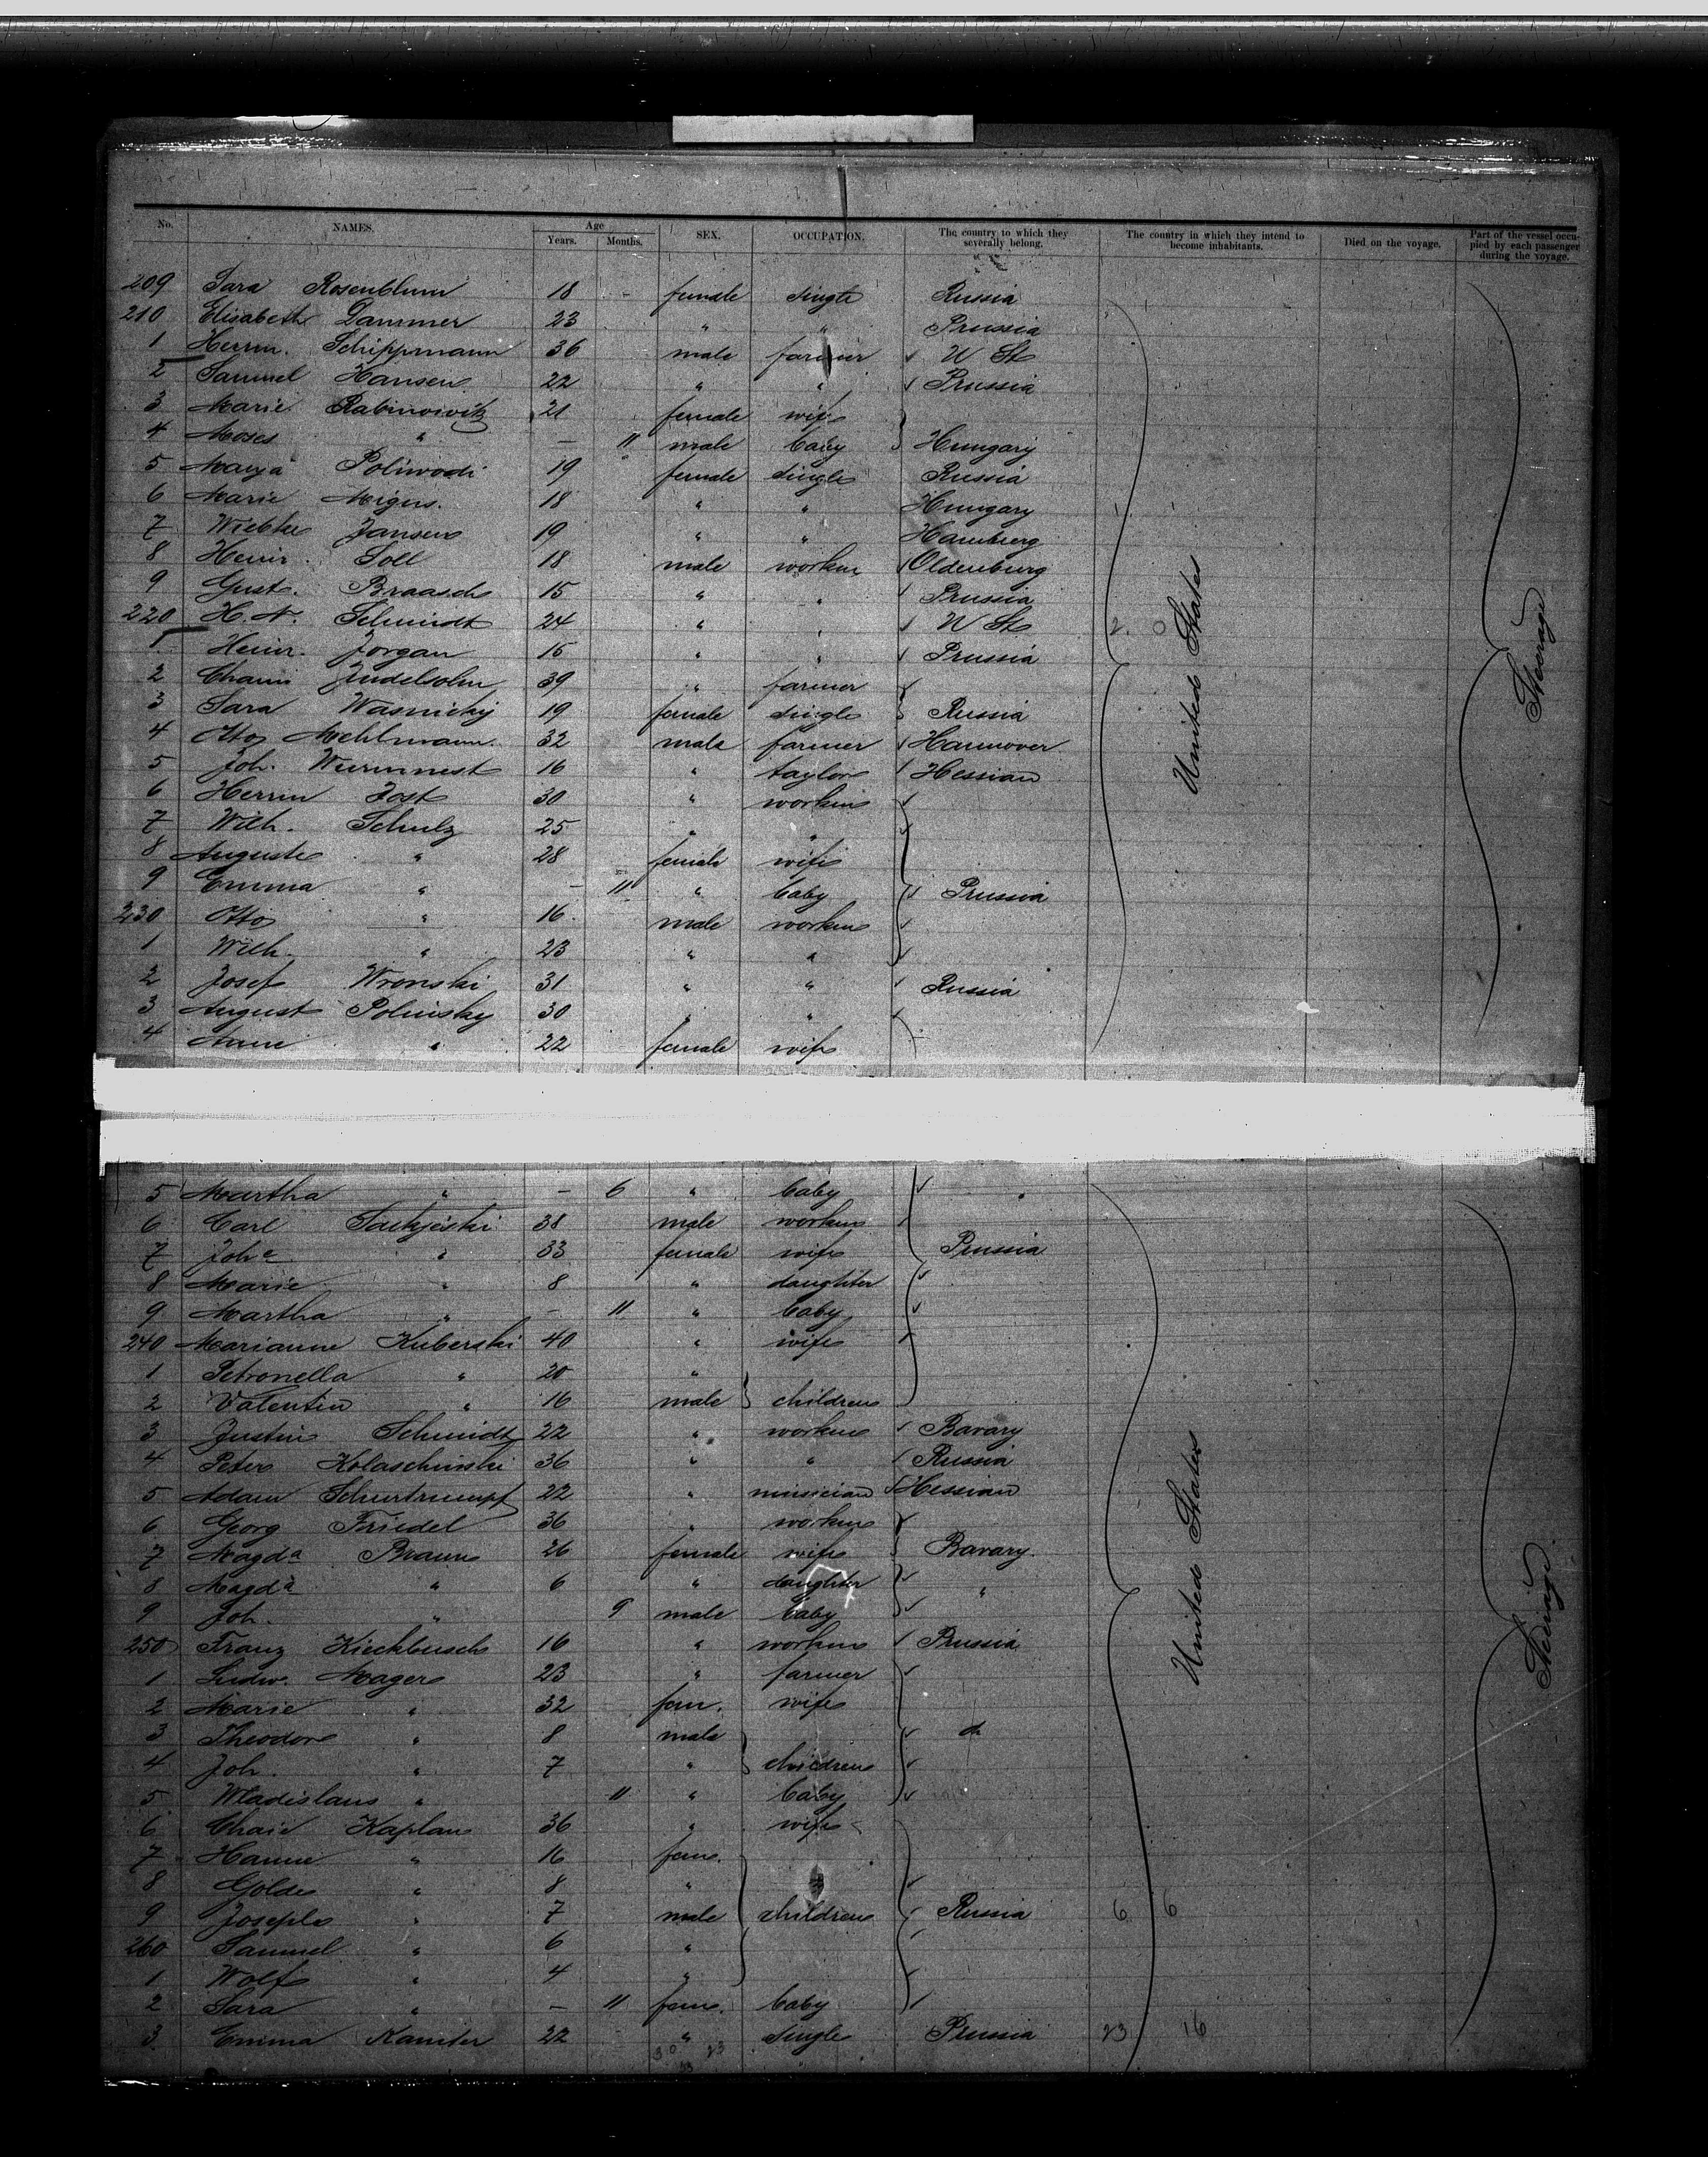 No. NAMES. Age Years. Months. SEX. OCCUPATION. The country to which they severally belong. The country in which they intend to become inhabitants. Died on the voyage. Part of the vessel occupied by each passenger during the voyage.
209 Sara Rosenblum 18 - female single Russia
210 Elisabeth Dammer 23 " " Prussia
1 Herrm. Schippmann 36 male farmer U St
2 Samuel Hansen 22 " " Prussia
3 Marie Rabinowitz 21 female wife
4 Moses " - 11 male baby Hungary
5 Poliwodi 19 female single Russia
6 Marie Migus. 18 " " Hungary
7 Wiebke Jansen 19 " " Hamburg
8 Heinr. Soll 18 male workm Oldenburg
9 Gust. Braasch 15 " " Prussia
220 H. N. Schmidt 24 " " U St 2. 0
1 Heinr. Jorgan 15 " " Prussia
2 Chaim Judelsohn 39 " farmer
3 Sara Wasnicky 19 female single Russia
4 Otto Mehlmann. 32 male farmer Hannover
5 Joh. Wurmnest 16 " taylor Hessian
6 Herrm Jost 30 " workm
7 Wilh. Schulz 25 " "
8 Auguste " 28 female wife
9 Emma " - 11 " baby Prussia
230 Otto " 16 male workm
1 Wilh. " 23 " "
2 Josef Wronski 31 " " Russia
3 August Polinsky 30 " "
4 Anne " 22 female wife
United States
Steerage
5 Martha " - 6 " baby "
6 Carl 38 male workm
7 Joh a " 33 female wife Prussia
8 Marie " 8 " daughter
9 Martha " - 11 " baby
240 Marianne Kuberski 40 " wife
1 Petronella " 20 "
2 Valentin " 16 male children
3 Justin Schmidt 22 " workm Bavary
4 Peter Kolaschinski 36 " " Russia
5 Adam Schertrumpf 22 " musician Hessian
6 Georg Friedel 36 " workm
7 Magd a Braun 26 female wife Bavary.
8 Magd a " 6 " daughter "
9 Joh. " 9 male baby
250 Franz Kieckbusch 16 " workm Prussia
1 Ludw. Mager 23 " farmer
2 Marie " 32 fem. wife
3 Theodor " 8 male do
4 Joh. " 7 " children
5 Wladislaus " 11 " baby
6 Chaie Kaplan 36 " wife
7 Hanne " 16 fem.
8 Golde " 8 "
9 Joseph " 7 male children Russia 6 6
260 Samuel " 6 "
1 Wolf " 4 "
2 Sara " - 11 fem. baby
3 Emma Kamter 22 " single Prussia 23 16
United States
Steerage